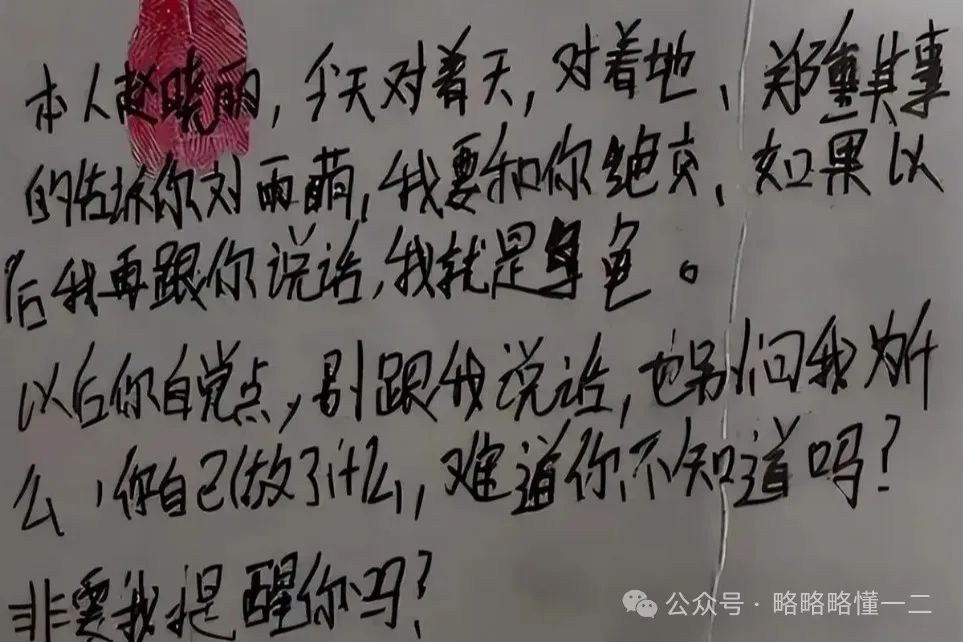 本人赵晓丽，今天对着天，对着地，郑重其事
的告诉你刘雨萌，我要和你绝交，如果以
后我再跟你说话，我就是乌龟。
以后你自觉点，别跟我说话，也别问我为什
么，你自己做了什么，难道你不知道吗？
非要我提醒你吗？
公众号·略略略懂一二